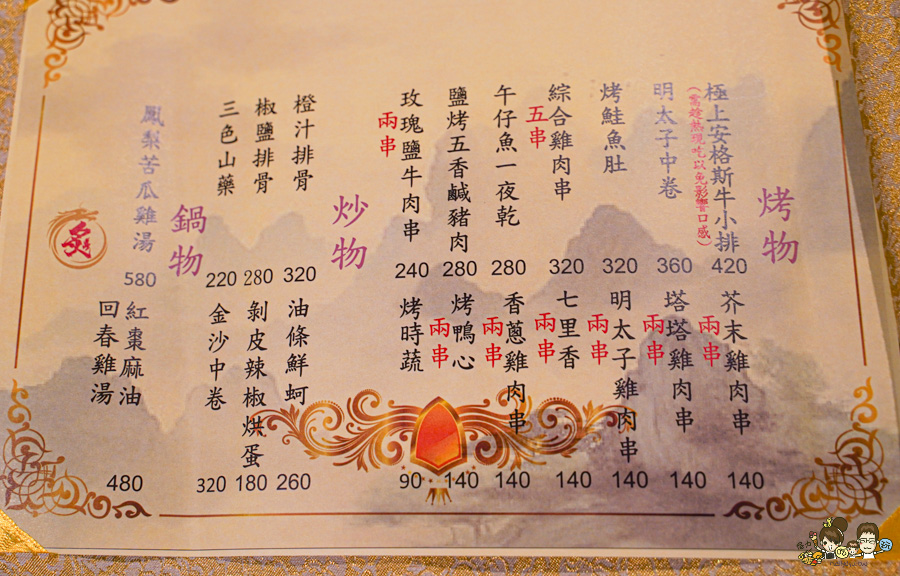 烤物
極上安格斯牛小排
(需趁熱現吃以免影響口感)
420
明太子中卷
360
烤鮭魚肚
320
綜合雞肉串
五串
320
午仔魚一夜乾
280
鹽烤五香鹹豬肉
280
玫瑰鹽牛肉串
兩串
240
芥末雞肉串
兩串
140
塔塔雞肉串
兩串
140
明太子雞肉串
兩串
140
七里香
兩串
140
香蔥雞肉串
兩串
140
烤鴨心
兩串
140
烤時蔬
90
炒物
橙汁排骨
320
椒鹽排骨
280
三色山藥
220
油條鮮蚵
260
剝皮辣椒烘蛋
180
金沙中卷
320
鍋物
鳳梨苦瓜雞湯
580
紅棗麻油
回春雞湯
480
炙